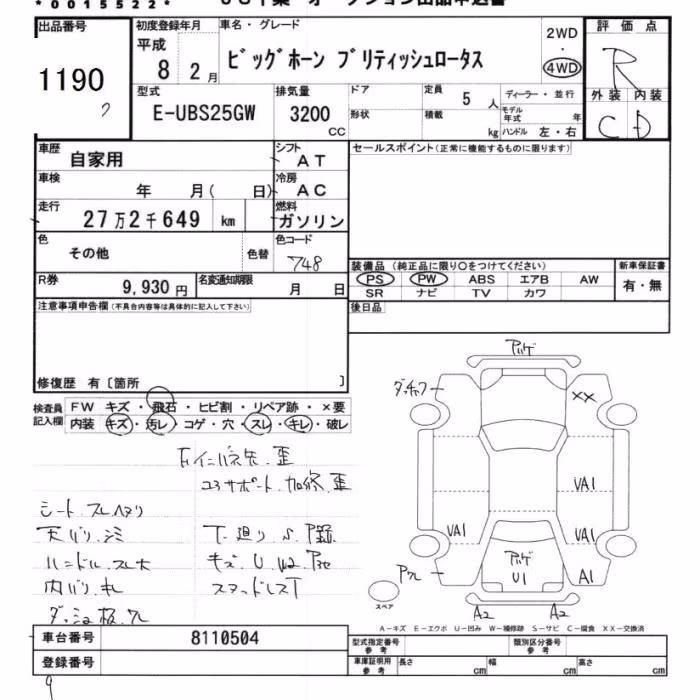 *0015522*
出品番号 初度登録年月 車名・グレード 2WD 評価点
1190 平成 8 2月 ビッグホーン ブリティッシュロータス ・ 4WD R
型式 排気量 ドア 定員 5人 ディーラー・並行 外装 内装
E-UBS25GW 3200 CC 形状 積載 kg モデル年式 年 ハンドル 左・右 C D
車歴 自家用 シフト AT セールスポイント(正常に機能するものに限ります)
車検 年 月( 日) 冷房 AC
走行 27万2千649 km 燃料 ガソリン
色 その他 色替 色コード 748
装備品 (純正品に限り○をつけてください) 新車保証書
PS PW ABS エアB AW 有・無
SR ナビ TV カワ
R券 9,930円 名変通知期限 月 日
後日品
注意事項申告欄(不具合内容等は具体的に記入して下さい)
修復歴 有〔箇所 〕
検査員記入欄 FW キズ・飛石・ヒビ割・リペア跡・×要
内装 キズ・汚レ・コゲ・穴・スレ・キレ・破レ
コアサポート加修、歪
シート スレ ヘタリ
天バリ、シミ
ハンドル、スレ大
内バリ、キレ
ダッシュ板、ワレ
アハゲ
××
VA1
VA1
VA1
A1
アハゲ
U1
A2
A2
スペア
A−キズ E−エクボ U−凹み W−補修跡 S−サビ C−腐食 XX−交換済
車台番号 8110504
登録番号
型式指定番号 参考 類別区分番号 参考
車庫証明用 参考 長さ cm 幅 cm 高さ cm